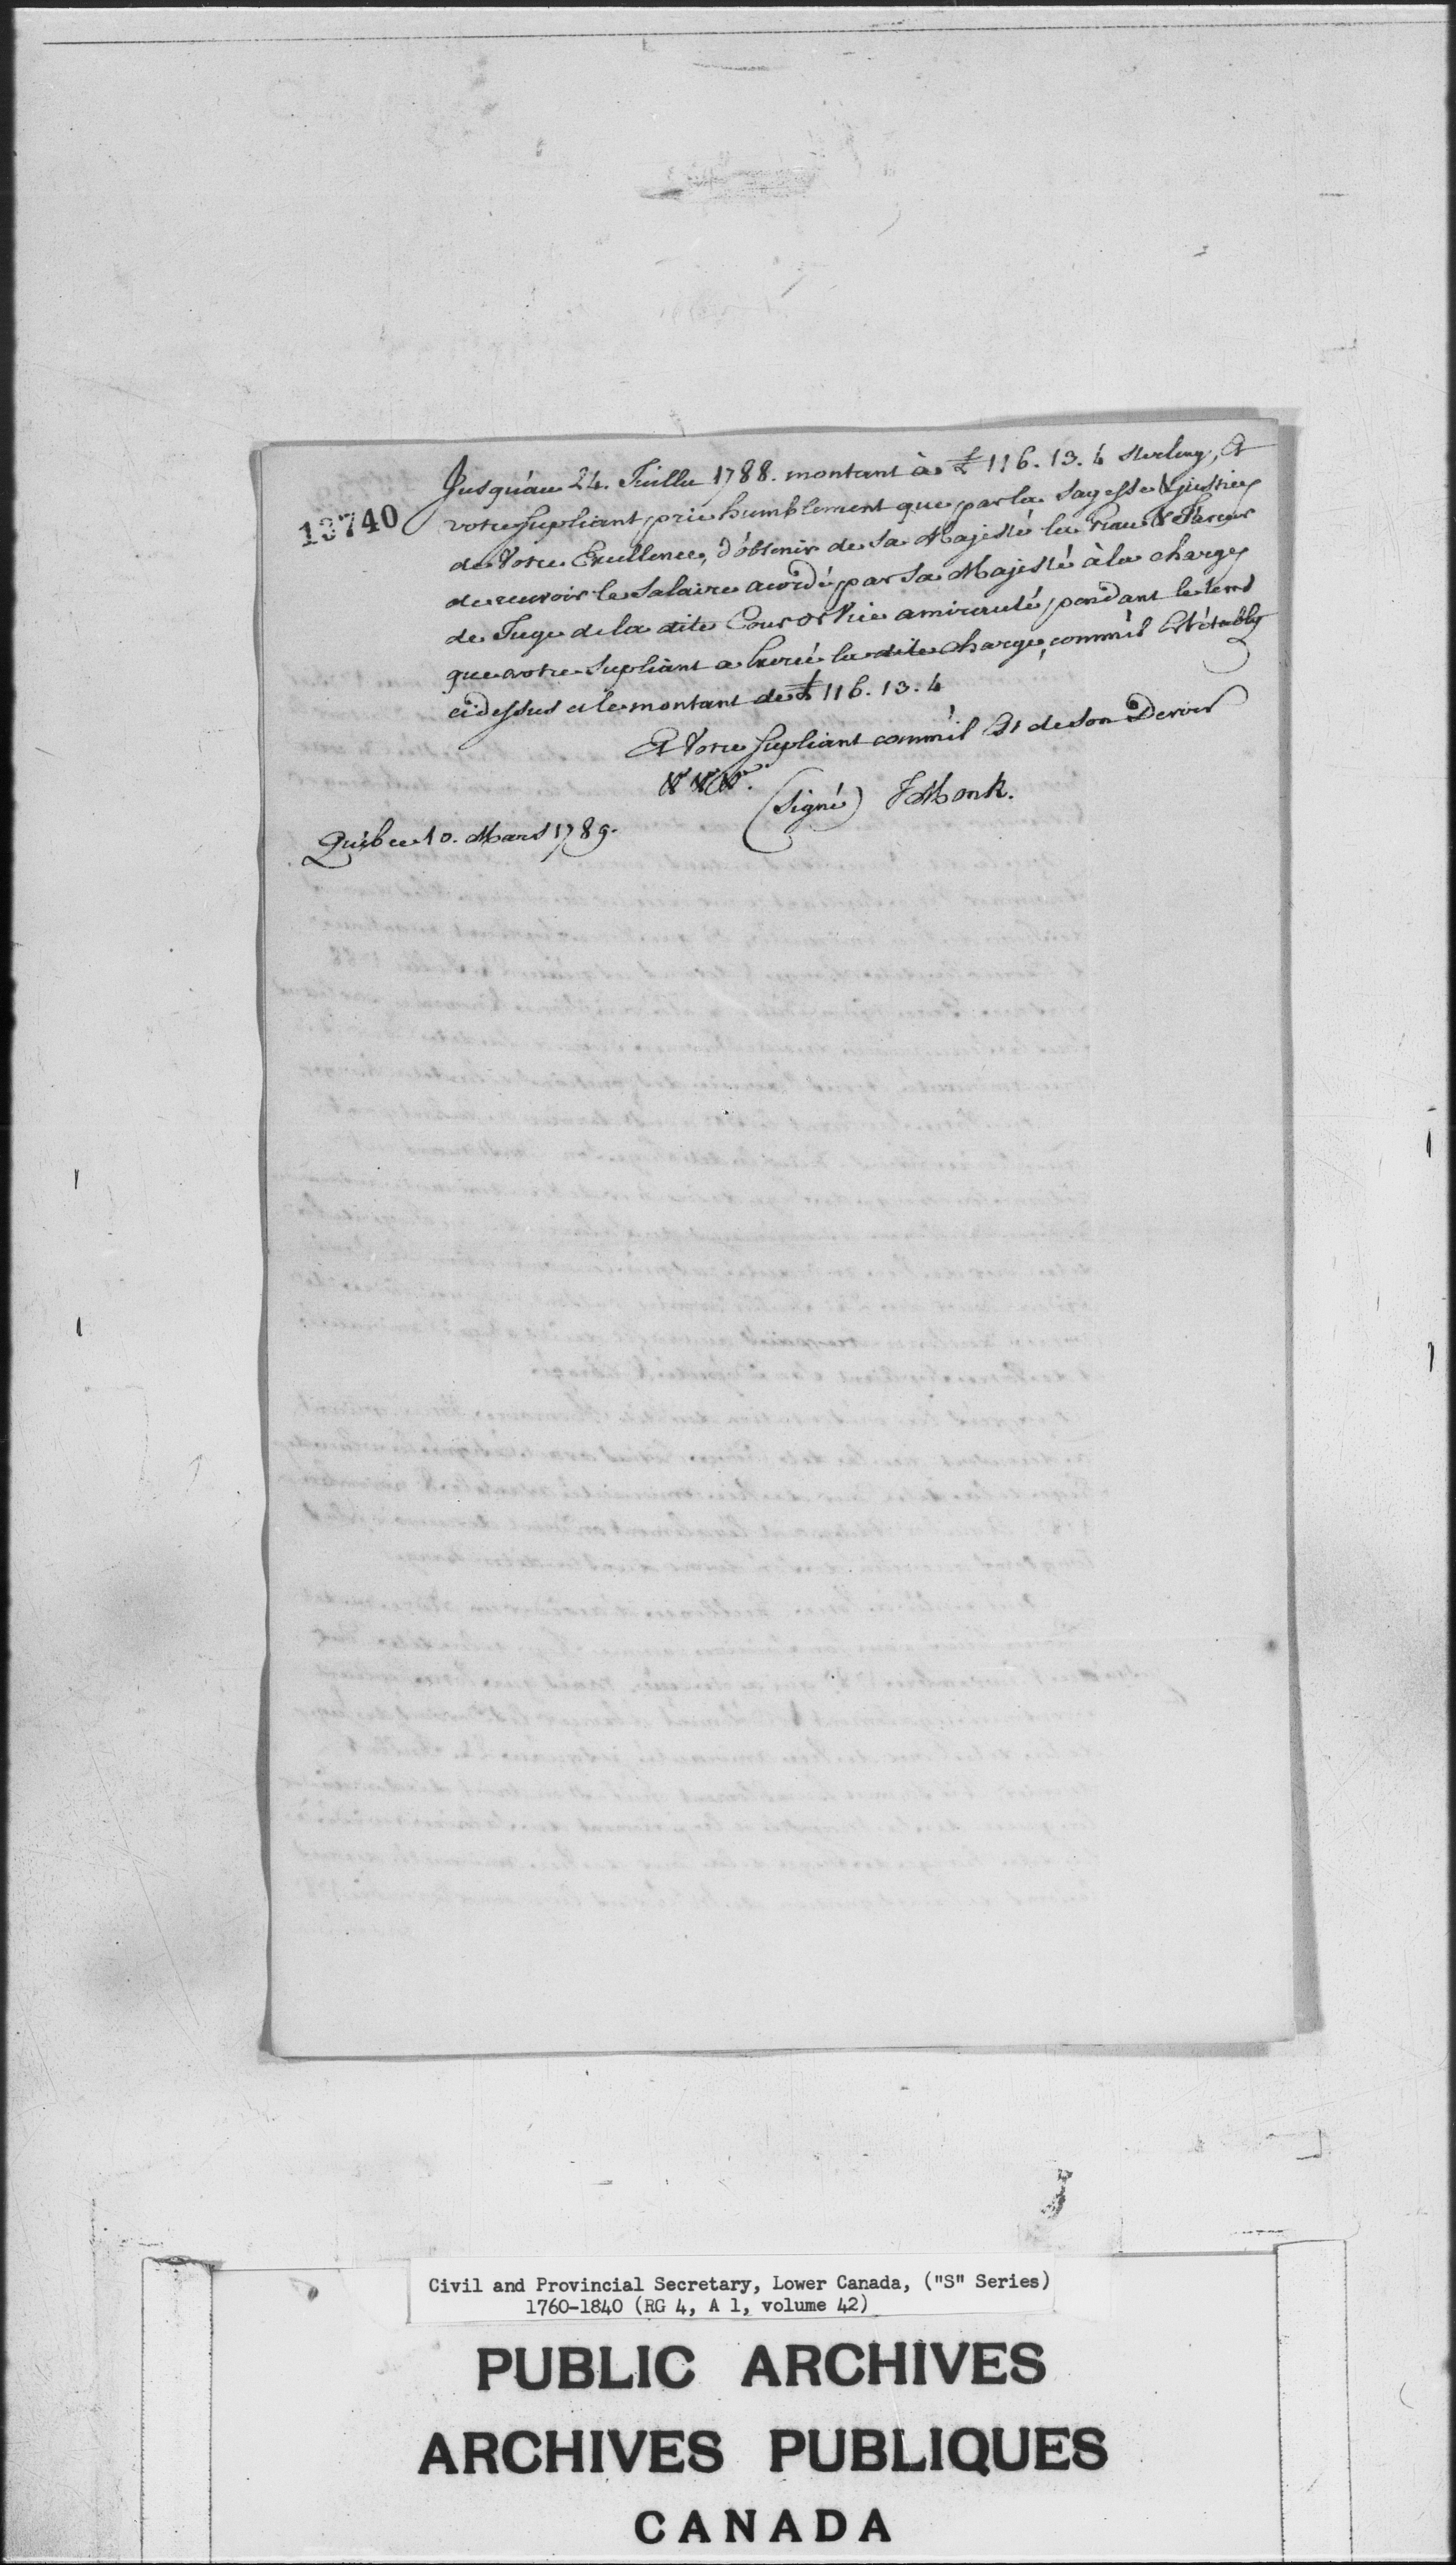 13740
Jusqu'au 24. Juillu 1788. montant à £ 116. 13. 4 sterling, Et
votre supliant prie humblement que par la sagesse & justice
de Votre Excellence, d'obtenir de sa Majesté la & faveur
de recevoir le salaire acordé par sa Majesté à la charge
de Juge de la dite Cour de Vice amirauté, pendant le tems
que votre supliant a la dite charge, comm'il Est établly
cidessus et le montant de £ 116. 13. 4
Et Votre supliant comm'il Est de son Devoir
&c &c &c.
(signé) J Monk.
Québec 10. Mars 1789.
Civil and Provincial Secretary, Lower Canada, ("S" Series)
1760-1840 (RG 4, A 1, volume 42)
PUBLIC ARCHIVES
ARCHIVES PUBLIQUES
CANADA